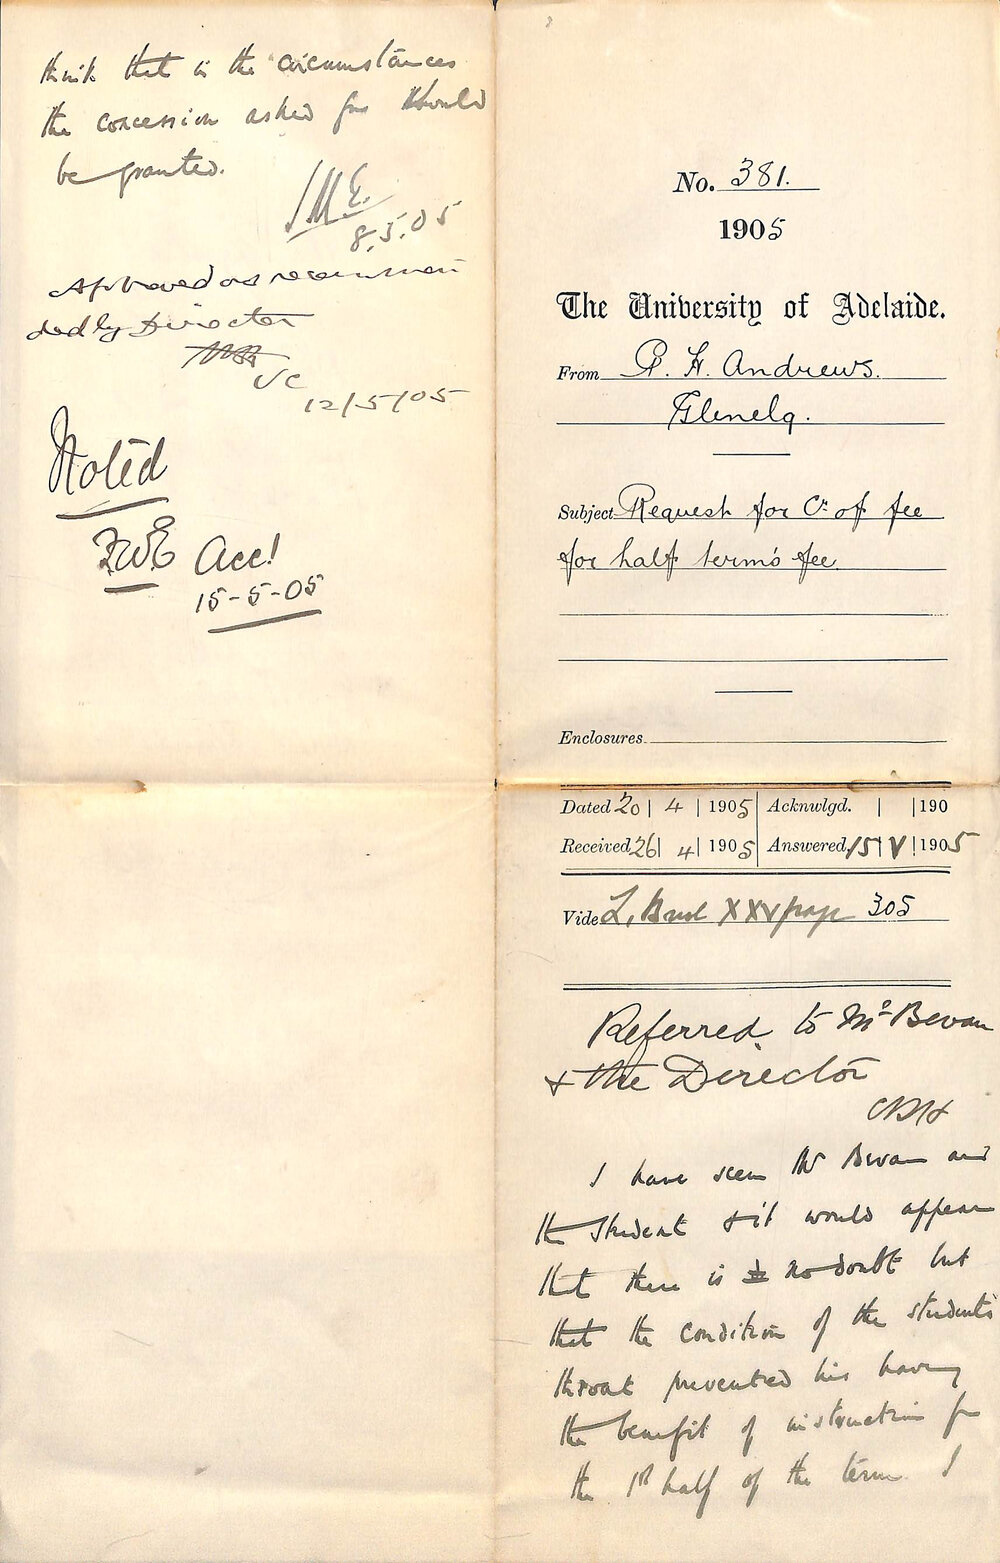 No. 381.
1905
The University of Adelaide.
From P. H. Andrews.
Glenelg.
Subject Request for Cr. of fee
for half term's fee.
Enclosures
Dated 20 | 4 | 1905 | Acknwlgd. | | 190
Received 26 | 4 | 1905 | Answered 15 | V | 1905
Vide L. Book XXV page 305
Referred to Mr Bevan
& the Director
I have seen Mr Bevan and
the student & it would appear
that there is no doubt but
that the condition of the students
throat prevented his having
the benefit of instruction for
the 1st half of the term I
think that in the circumstances
the concession asked for should
be granted.
8.5.05
Approved as recommen
ded by Director
VC
12/5/05
Noted
FWE Acc!
15-5-05